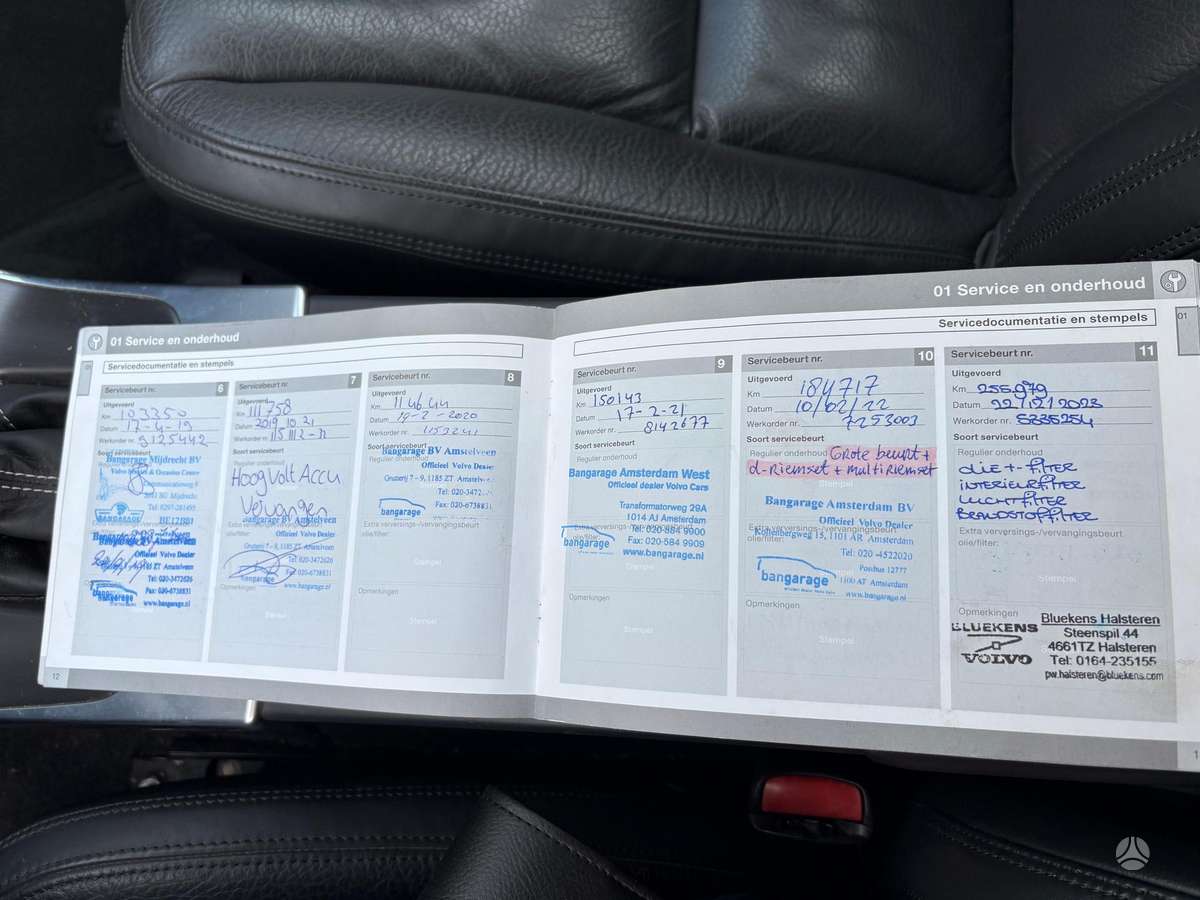 01 Service en onderhoud
Servicedocumentatie en stempels
Servicebeurt nr. 6
Uitgevoerd
Km 103350
Datum 17-4-19
Werkorder nr. 9125442
Soort servicebeurt
Bangarage Mijdrecht BV
Volvo Sales & Occasion Centre
Communicatieweg
Mijdrecht
Tel: 0297-281455
BANGARAGE
Bangarage BV Amstelveen
Officieel Volvo Dealer
Tel: 020-3472626
Fax: 020-6738831
bangarage
www.bangarage.nl
Servicebeurt nr. 7
Uitgevoerd
Km 111758
Datum 2019 10 21
Werkorder nr.
Soort servicebeurt
Regulier onderhoud
Hoog Volt Accu
Vervangen
Bangarage BV Amstelveen
Extra verversings-/vervangingsbeurt
olie/filter:
Officieel Volvo Dealer
Gruzerij 7-9, 1185 ZT Amstelveen
Tel: 020-3472626
Fax: 020-6738831
bangarage
www.bangarage.nl
Opmerkingen
Stempel
Servicebeurt nr. 8
Uitgevoerd
Km 114644
Datum 19-2-2020
Werkorder nr. 1153241
Soort servicebeurt
Bangarage BV Amstelveen
Regulier onderhoud
Officieel Volvo Dealer
Gruzerij 7-9, 1185 ZT Amstelveen
Tel: 020-3472
Fax: 020-6738831
bangarage
www.bangarage.nl
Extra verversings-/vervangingsbeurt
olie/filter:
Stempel
Opmerkingen
Stempel
12
01 Service en onderhoud
01
Servicedocumentatie en stempels
Servicebeurt nr. 9
Uitgevoerd
Km 150143
Datum 17-2-21
Werkorder nr. 8142677
Soort servicebeurt
Regulier onderhoud
Bangarage Amsterdam West
Officieel dealer Volvo Cars
Transformatorweg 29A
1014 AJ Amsterdam
Extra verversings-/vervangingsbeurt
olie/filter:
Tel: 020-584 9900
Fax: 020-584 9909
bangarage
www.bangarage.nl
Stempel
Opmerkingen
Stempel
Servicebeurt nr. 10
Uitgevoerd
Km 184717
Datum 10/02/22
Werkorder nr. 7253003
Soort servicebeurt
Regulier onderhoud
Grote beurt +
d-Riemset + multiriemset
Stempel
Bangarage Amsterdam BV
Officieel Volvo Dealer
Extra verversings-/vervangingsbeurt
olie/filter:
Kollenbergweg 15, 1101 AR Amsterdam
Tel: 020-4522020
Postbus 12777
1100 AT Amsterdam
bangarage
www.bangarage.nl
Opmerkingen
Stempel
Servicebeurt nr. 11
Uitgevoerd
Km 255.979
Datum 22/12/2023
Werkorder nr. 5335254
Soort servicebeurt
Regulier onderhoud
OLIE + FILTER
INTERIEURFILTER
LUCHTFILTER
BRANDSTOFFILTER
Extra verversings-/vervangingsbeurt
olie/filter:
Stempel
Opmerkingen
BLUEKENS
VOLVO
Bluekens Halsteren
Steenspil 44
4661TZ Halsteren
Tel: 0164-235155
pw.halsteren@bluekens.com